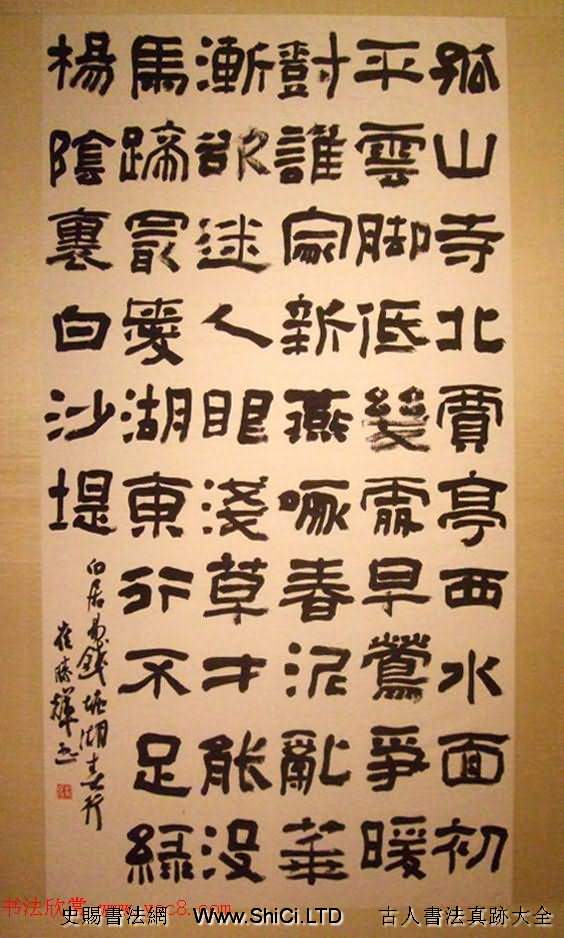 孤山寺北賈亭西水面初
平雲脚低幾處早鶯爭暖
樹誰家新燕啄春泥亂華
漸欲迷人眼淺草才能沒
馬蹄最愛湖東行不足綠
楊陰裏白沙堤
白居易錢塘湖春行
崔勝輝书
书法欣赏 www.yac8.com
史賜書法網 Www.ShiCi.LTD 古人書法真跡大全